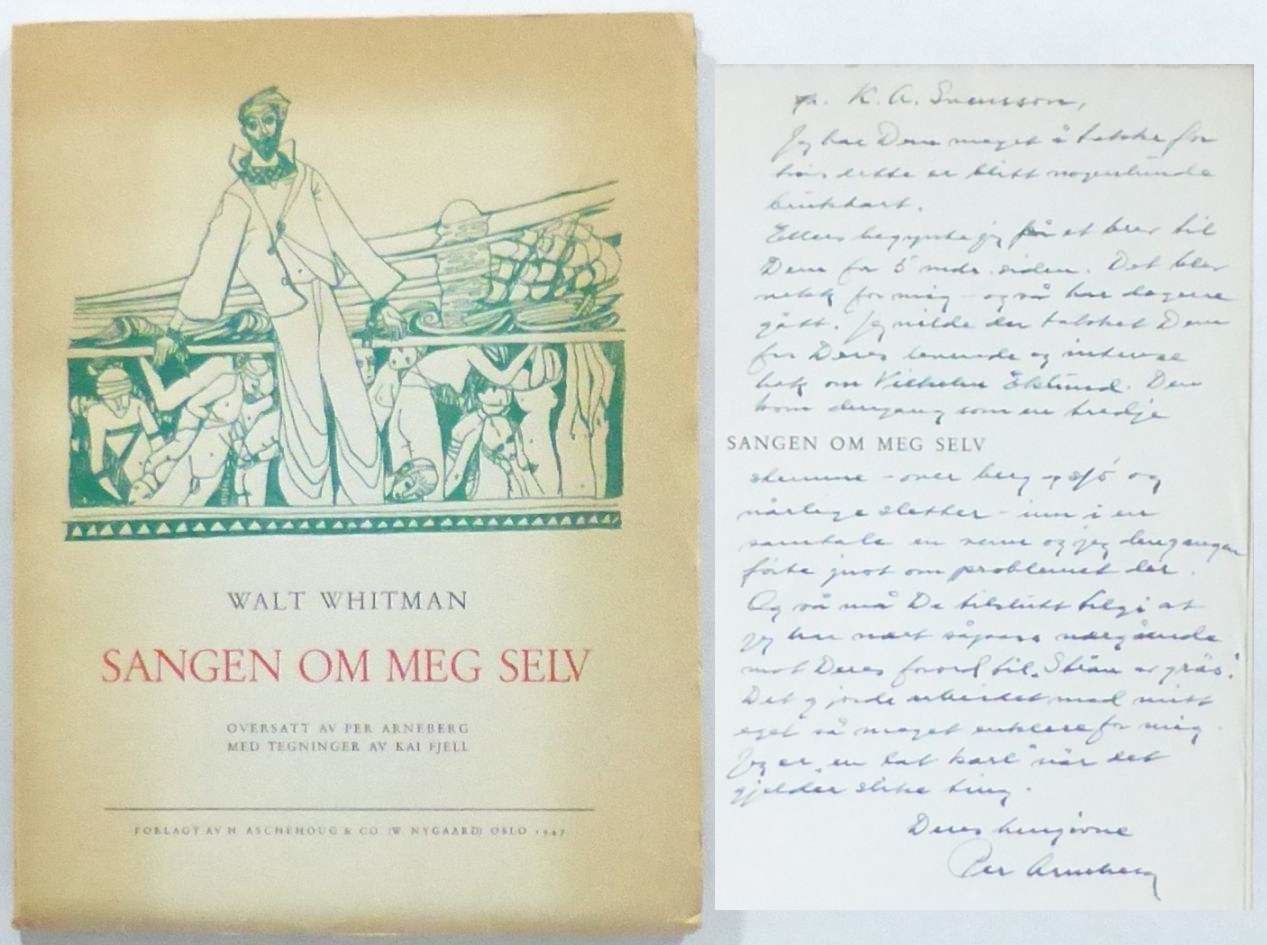 WALT WHITMAN
SANGEN OM MEG SELV
OVERSATT AV PER ARNEBERG
MED TEGNINGER AV KAI FJELL
FORLAGT AV H. ASCHEHOUG & CO (W. NYGAARD) OSLO 1947
K. A. Svensson,
Jeg har Dem meget å takke for
hvis dette er blitt nogenlunde
brukbart.
Ellers begynte jeg på et brev til
Dem for 5 mndr. siden. Det blev
vekk for mig – og så har dagene
gått. Jeg vilde der takket Dem
for Deres levende og intense
bok om Vilhelm Ekelund. Den
kom dengang som en tredje
SANGEN OM MEG SELV
stemme – over berg og sjö og
slette – inn i en
samtale en venn og jeg dengangen
förte just om problemet der.
Og så må De tilslutt tilgi at
jeg har vært såpass nærgående
mot Deres forord til „Strån av gräs".
Det gjorde arbeidet med mitt
eget så meget enklere for mig.
Jeg er „en lat karl" når det
gjelder slike ting.
Deres hengivne
Per Arneberg